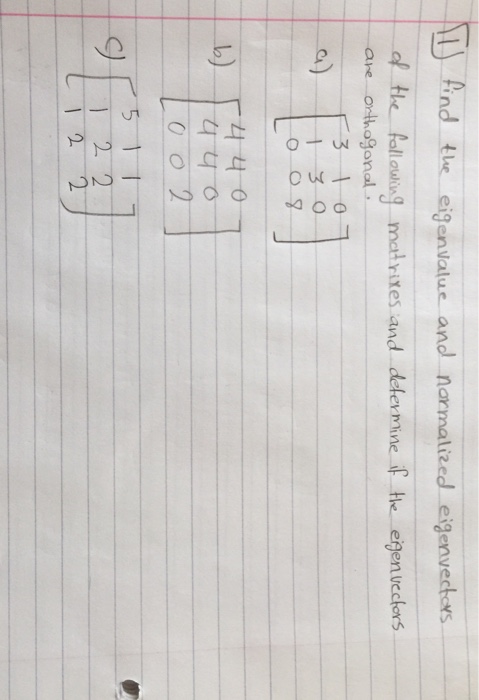 [1] find the eigenvalue and normalized eigenvectors
of the following matrixes and determine if the eigenvectors
are orthogonal.
a) [3 1 0
1 3 0
0 0 8]
b) [4 4 0
4 4 0
0 0 2]
c) [5 1 1
1 2 2
1 2 2]